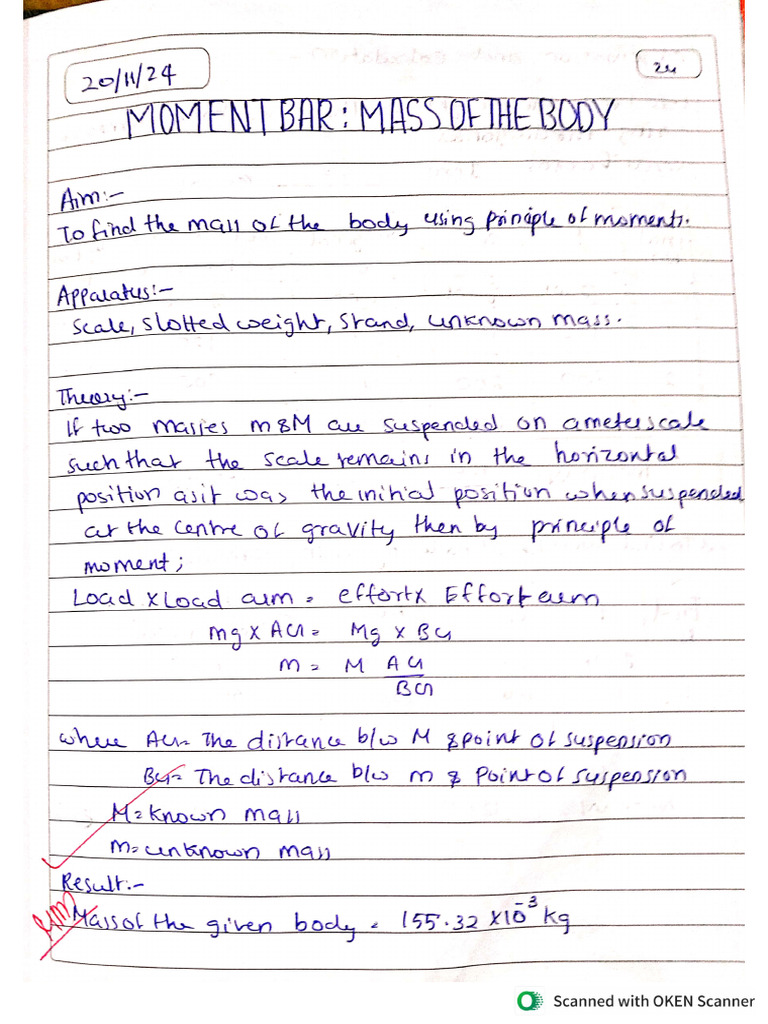 20/11/24
24
MOMENT BAR : MASS OF THE BODY
Aim:-
To find the mass of the body using priniple of moments.
Apparatus:-
Scale, Slotted weight, Stand, unknown mass.
Theory:-
If two masses m & M are suspended on a meter scale
such that the scale remains in the horizontal
position as it was the initial position when suspended
at the centre of gravity then by principle of
moment;
Load x Load arm = effort x Effort arm
mg x AG = Mg x BG
m = M AG
BG
where AG = The distance b/w M & point of suspension
BG = The distance b/w m & Point of suspension
M = known mass
m = unknown mass
Result:-
Mass of the given body = 155.32 x10⁻³ kg
Scanned with OKEN Scanner